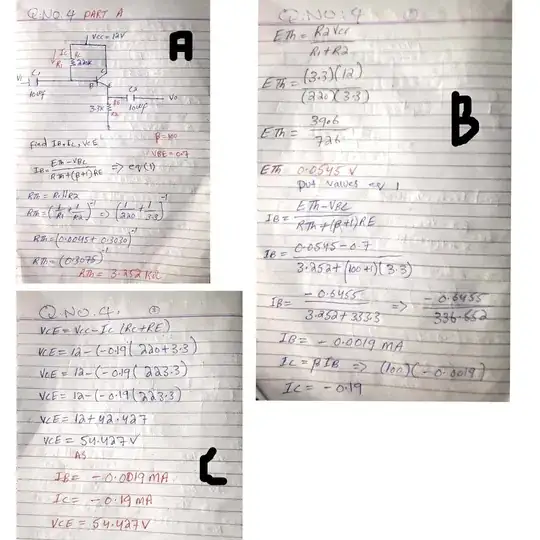 Q.NO.4 PART A
A
VCC = 12V
IC
RC
220K
C1
Vi
10uf
B
C
E
C2
Vo
10uf
3.3K
RE
Find IB, IC, VCE
β = 100
VBE = 0.7
IB = ETh - VBE / RTh + (β+1)RE => eq(1)
RTh = R1 || R2
RTh = (1/R1 + 1/R2)^-1 => (1/220 + 1/3.3)^-1
RTh = (0.0045 + 0.3030)^-1
RTh = (0.3075)^-1
RTh = 3.252 KΩ
Q.NO:4
B
ETh = R2 VCC / R1 + R2
ETh = (3.3)(12) / (220)(3.3)
ETh = 39.6 / 726
ETh 0.0545 V
put values eq 1
IB = ETh - VBE / RTh + (β+1)RE
IB = 0.0545 - 0.7 / 3.252 + (100+1)(3.3)
IB = -0.6455 / 3.252 + 333.3 => -0.6455 / 336.552
IB = -0.0019 MA
IC = βIB => (100)(-0.0019)
IC = -0.19
Q.NO.4.
VCE = VCC - IC (RC + RE)
VCE = 12 - (-0.19(220 + 3.3)
VCE = 12 - (-0.19(223.3)
VCE = 12 - (-0.19(223.3)
VCE = 12 + 42.427
VCE = 54.427 V
AS
C
IB = -0.0019 MA
IC = -0.19 MA
VCE = 54.427 V